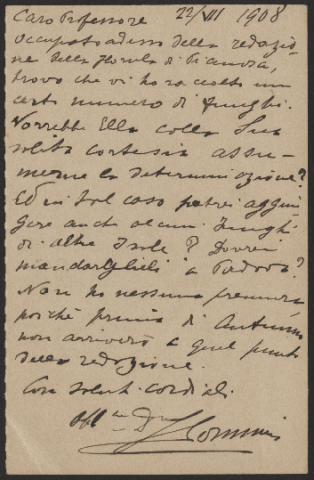 Caro Professore 22/VII 1908
Occupato adesso della redazio
ne della florula di Pianosa,
trovo che vi ho raccolto un
certo numero di funghi.
Vorrebbe Ella colla Sua
solita cortesia assu-
merne la determinazione?
Ed in tal caso potrei aggiun
gere anche alcuni funghi
di altre Isole? Dovrei
mandarglieli a Padova?
Non ho nessuna premura
poichè prima di Autunno
non arriverò a quel punto
della redazione.
Con saluti cordiali.
Aff.mo Dev.mo
Sommier